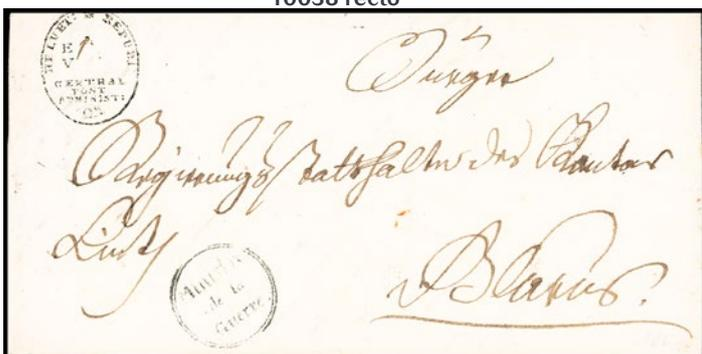 10038 recto
HELVET: REPUBL
E
V
CENTRAL
POST
ADMINIST:
Bürger
Regierungsstatthalter des Kantons
Linth
Minist.
de la
Guerre.
Glarus.